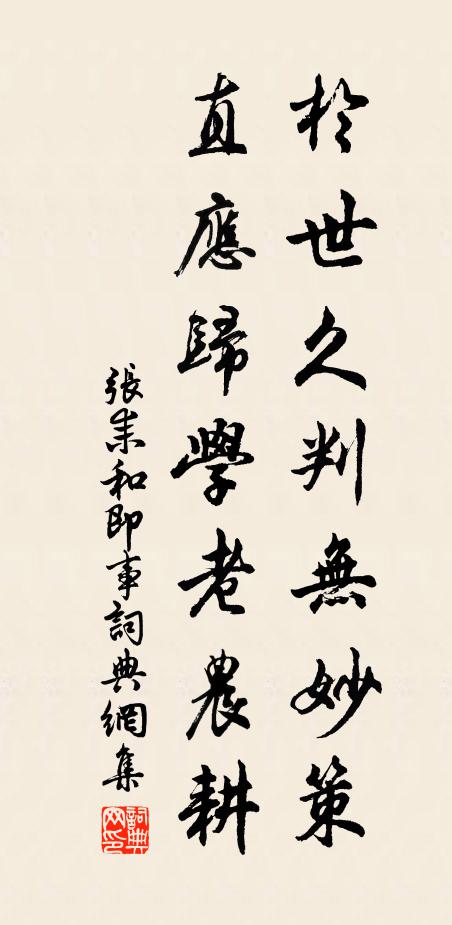 於世久判無妙策
直應歸學老農耕
張耒和即事詞典網集
詞典網印